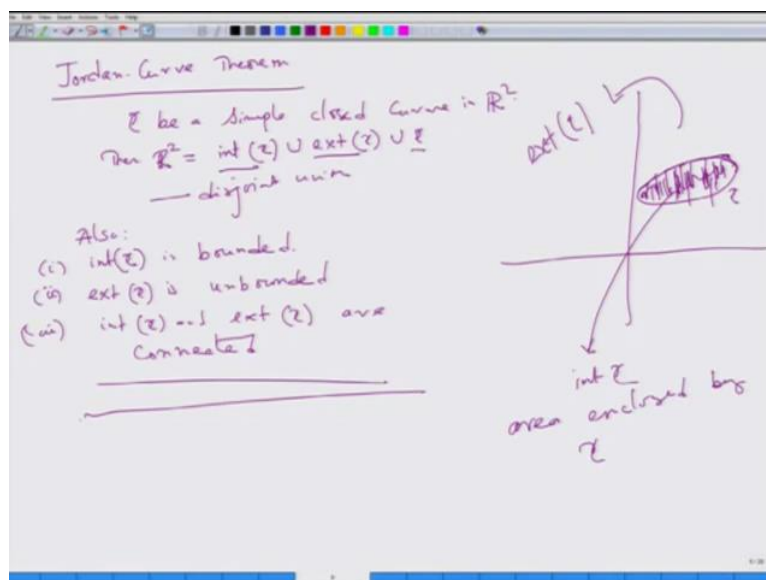 Jordan-Curve Theorem
τ be a simple closed curve in ℝ².
Then ℝ² = int(τ) ∪ ext(τ) ∪ τ
— disjoint union
Also:
(i) int(τ) is bounded.
(ii) ext(τ) is unbounded
(iii) int(τ) and ext(τ) are
connected
ext(τ)
τ
int τ
area enclosed by
τ